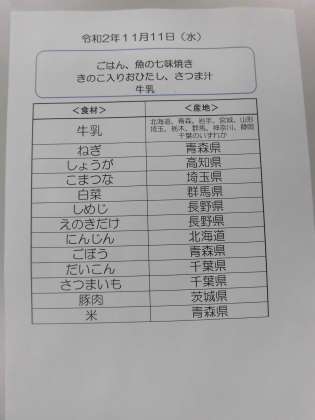 令和2年11月11日（水）
ごはん、魚の七味焼き
きのこ入りおひたし、さつま汁
牛乳
＜食材＞ ＜産地＞
牛乳 北海道、青森、岩手、宮城、山形
埼玉、栃木、群馬、神奈川、静岡
千葉のいずれか
ねぎ 青森県
しょうが 高知県
こまつな 埼玉県
白菜 群馬県
しめじ 長野県
えのきだけ 長野県
にんじん 北海道
ごぼう 青森県
だいこん 千葉県
さつまいも 千葉県
豚肉 茨城県
米 青森県